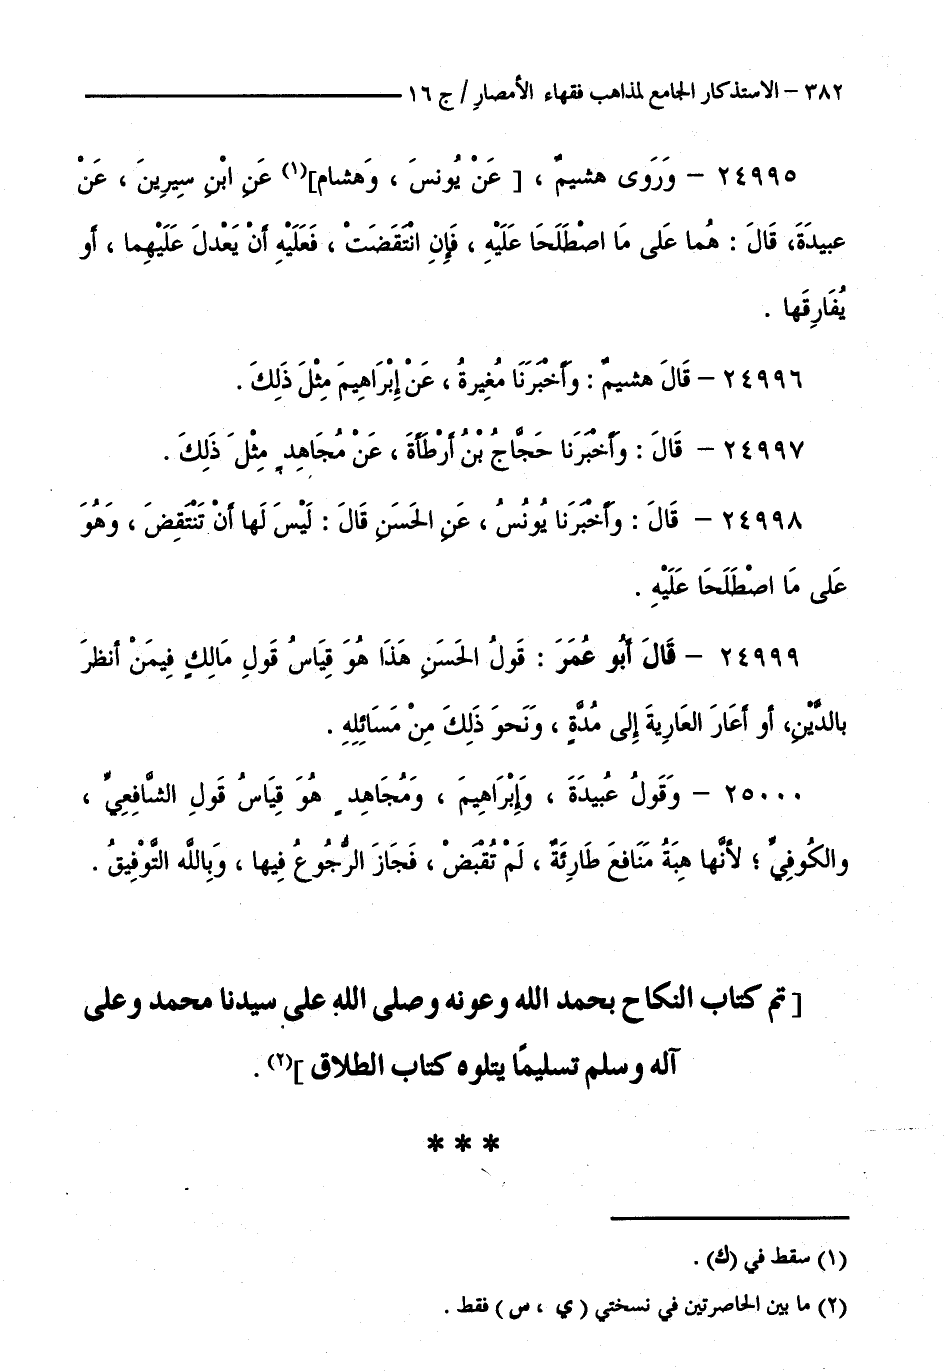 ٣٨٢ – الاستذكار الجامع لمذاهب فقهاء الأمصار / ج ١٦
٢٤٩٩٥ – وَرَوى هشيمٌ ، [ عَنْ يُونسَ ، وَهشام](١) عَنِ ابْنِ سِيرِينَ ، عَنْ
عبيدَةَ، قَالَ : هُما عَلى مَا اصْطَلَحَا عَلَيْهِ ، فَإِنِ انْتَقَضَتْ ، فَعَلَيْهِ أَنْ يَعْدلَ عَلَيْهِما ، أو
يُفَارِقَها .
٢٤٩٩٦ – قَالَ هشيمٌ : وَأَخْبَرَنَا مُغِيرةُ ، عَنْ إِبْرَاهِيمَ مِثْلَ ذَلِكَ .
٢٤٩٩٧ – قَالَ : وَأَخْبَرَنا حَجَّاجُ بْنُ أَرْطَأَةَ ، عَنْ مُجَاهِدٍ مِثْلَ ذَلِكَ .
٢٤٩٩٨ – قَالَ : وَأَخْبَرَنا يُونُسُ ، عَنِ الحَسَنِ قَالَ : لَيْسَ لَها أَنْ تَنْتَقِضَ ، وَهُوَ
عَلى مَا اصْطَلَحَا عَلَيْهِ .
٢٤٩٩٩ – قَالَ أَبُو عُمَرَ : قَولُ الحَسَنِ هَذَا هُوَ قِيَاسُ قَولِ مَالِكٍ فِيمَنْ أنظرَ
بالدَّيْنِ، أو أَعَارَ العَارِيةَ إِلى مُدَّةٍ ، وَنَحوَ ذَلِكَ مِنْ مَسَائِلِهِ .
٢٥٠٠٠ – وَقَولُ عُبيدَةَ ، وَإِبْرَاهِيمَ ، وَمُجَاهِدٍ هُوَ قِيَاسُ قَولِ الشَّافِعِيِّ ،
والكُوفِيِّ ؛ لأَنَّها هِبَةُ مَنَافعَ طَارِئَةٌ ، لَمْ تُقْبَضْ ، فَجَازَ الرُّجُوعُ فِيها ، وَبِاللَّه التَّوْفِيقُ .
[ تم كتاب النكاح بحمد الله وعونه وصلى الله على سيدنا محمد وعلى
آله وسلم تسليمًا يتلوه كتاب الطلاق ](٢) .
* * *
(١) سقط في (ك) .
(٢) ما بين الحاصرتين في نسختي ( ي ، س ) فقط .